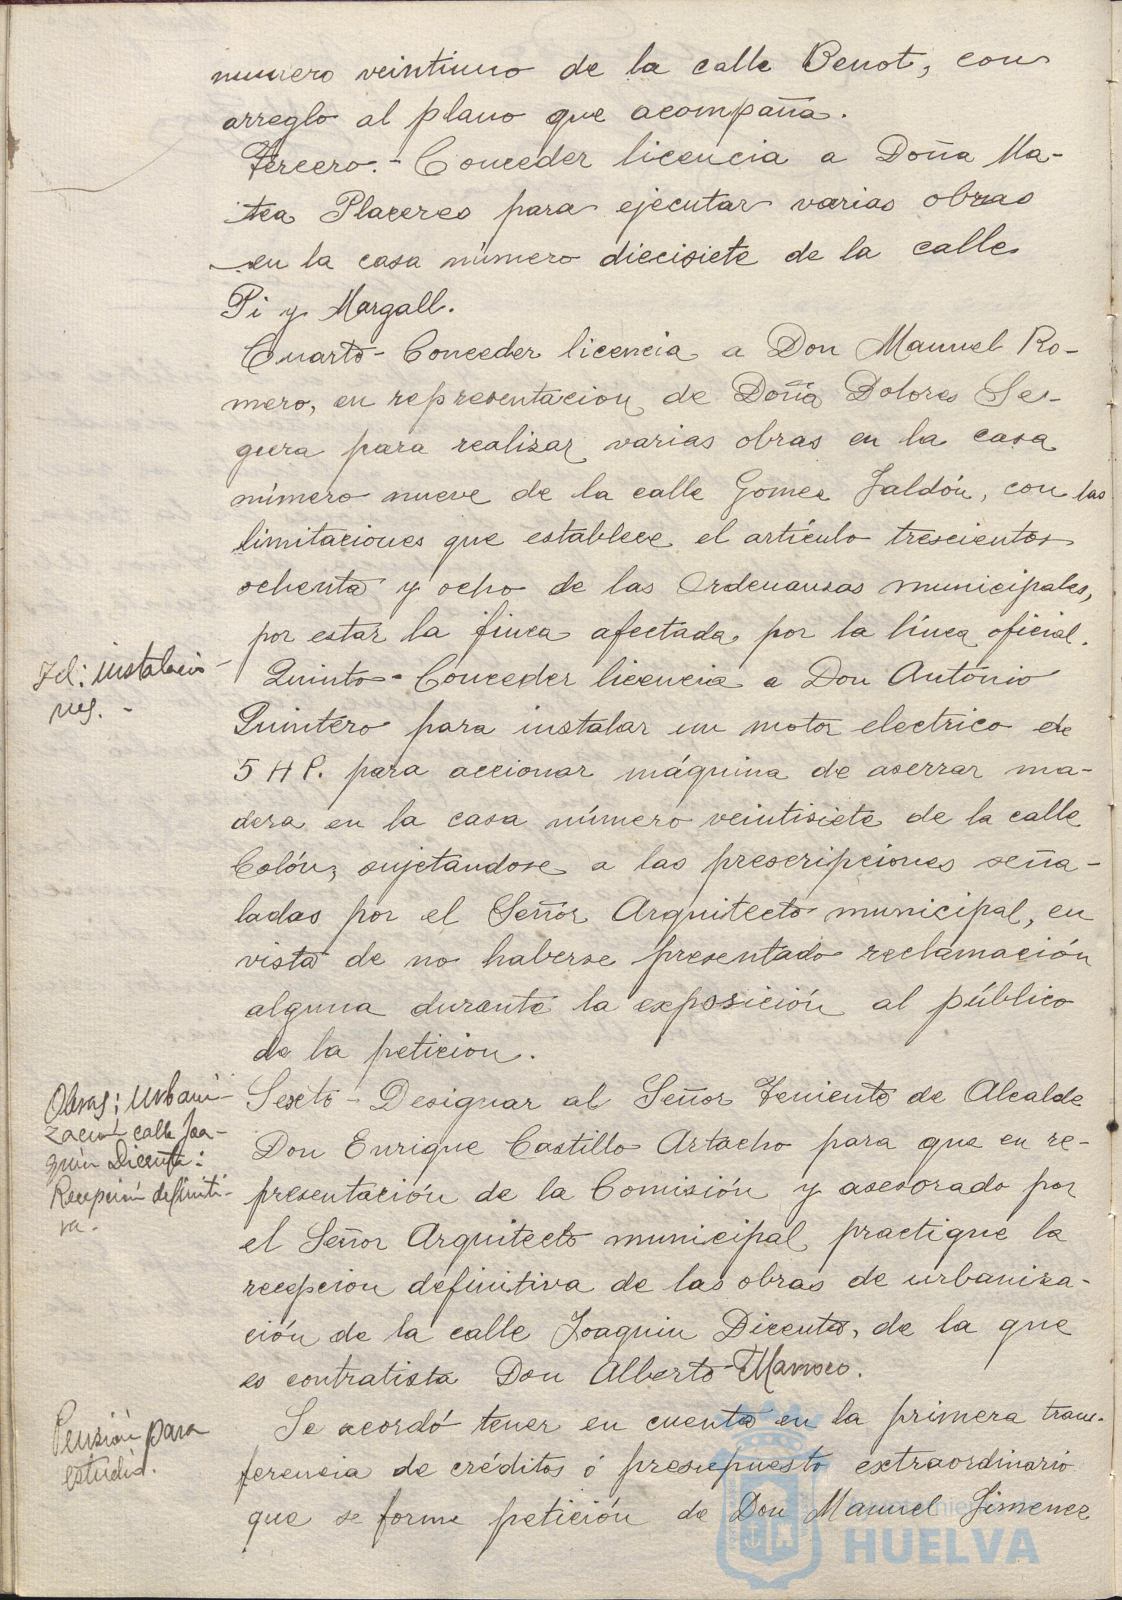 numero veintiuno de la calle Benot, con
arreglo al plano que acompaña.
Tercero.- Conceder licencia a Doña Ma-
tea Placeres para ejecutar varias obras
en la casa número diecisiete de la calle
Pi y Margall.
Cuarto- Conceder licencia a Don Manuel Ro-
mero, en representacion de Doña Dolores Se-
gura para realizar varias obras en la casa
número nueve de la calle Gomez Jaldón, con las
limitaciones que establece el artículo trescientos
ochenta y ocho de las Ordenansas municipales,
por estar la finca afectada por la línea oficial.
Id: instalacio-
nes.-
Quinto- Conceder licencia a Don Antonio
Quintero para instalar un motor electrico de
5 HP. para accionar máquina de aserrar ma-
dera en la casa número veintisiete de la calle
Colón, sujetandose a las prescripciones seña-
ladas por el Señor Arquitecto municipal, en
vista de no haberse presentado reclamación
alguna durante la exposición al público
de la peticion.
Obras: Urbani-
zacion calle Joa-
quin Dicenta:
Recepción definiti-
va.
Sexto- Designar al Señor Teniente de Alcalde
Don Enrique Castillo Artacho para que en re-
presentación de la Comisión y asesorado por
el Señor Arquitecto municipal practique la
recepcion definitiva de las obras de urbaniza-
ción de la calle Joaquin Dicenta, de la que
es contratista Don Alberto
Pensión para
estudio.
Se acordó tener en cuenta en la primera trans-
ferencia de créditos ó presupuesto extraordinario
que se forme petición de Don Manuel Jimenez
Ayuntamiento de
HUELVA